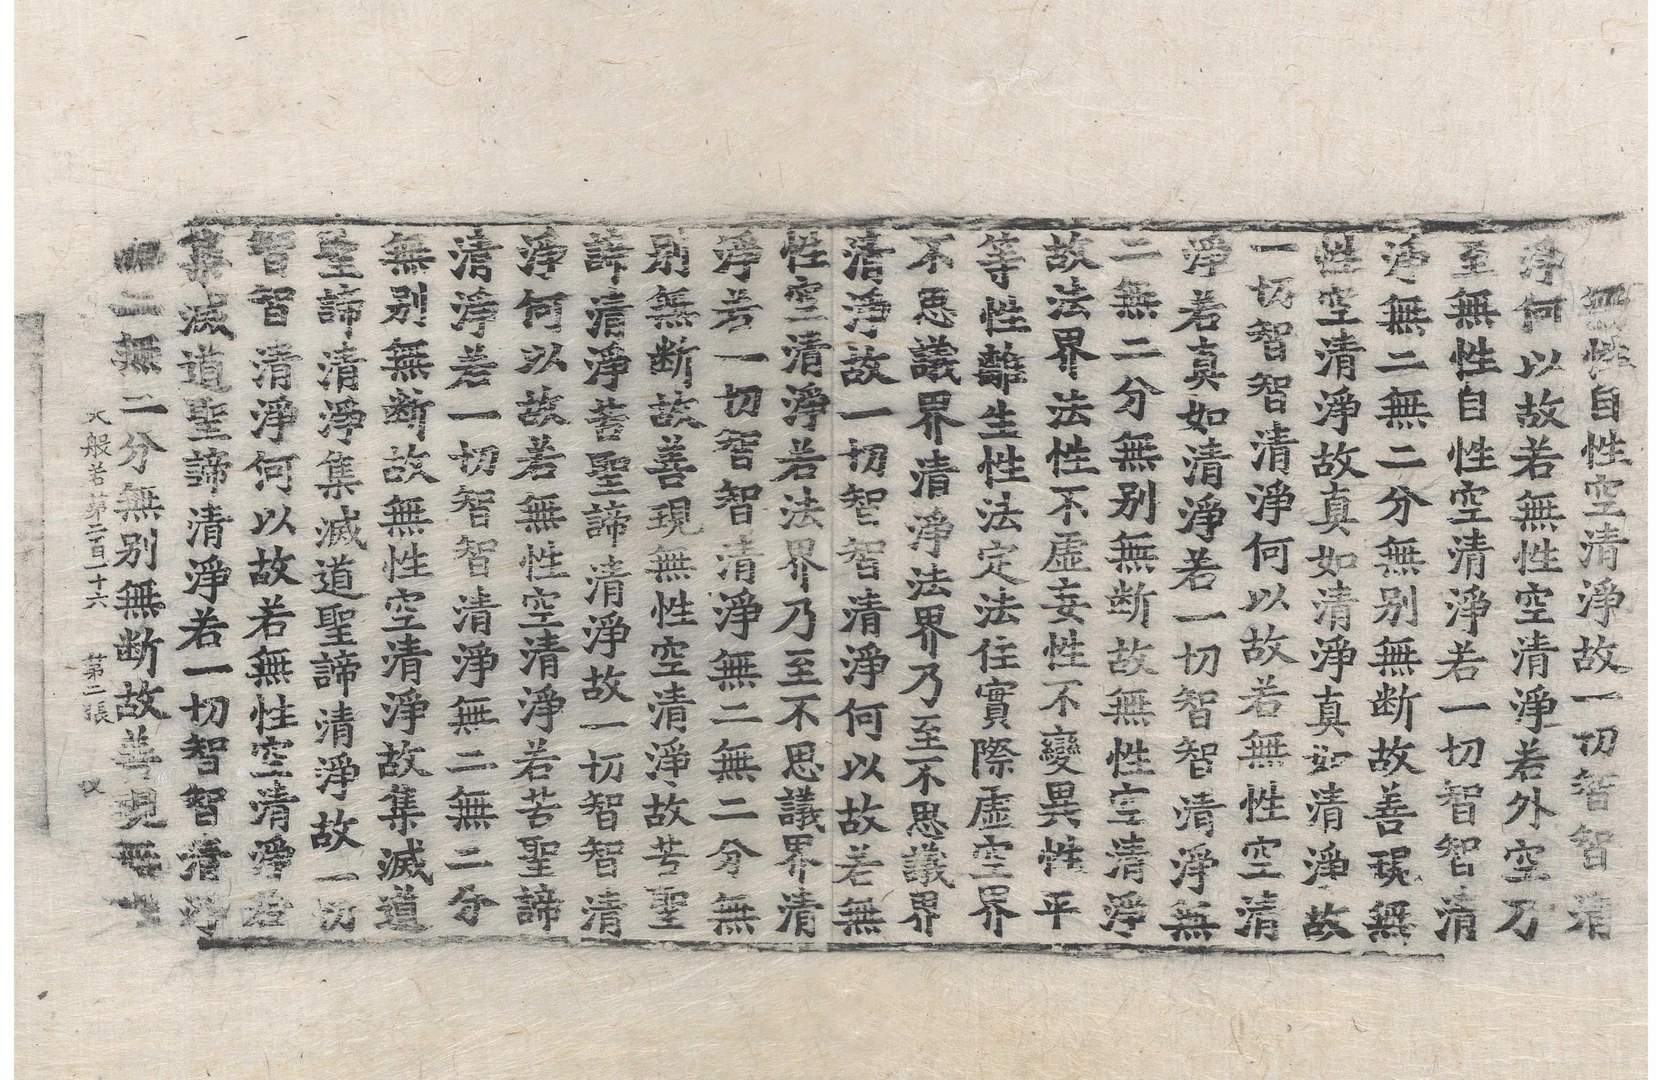 無性自性空清淨故一切智智清
淨何以故若無性空清淨若外空乃
至無性自性空清淨若一切智智清
淨無二無二分無别無断故善現無
性空清淨故真如清淨真如清淨故
一切智智清淨何以故若無性空清
淨若真如清淨若一切智智清淨無
二無二分無别無断故無性空清淨
故法界法性不虛妄性不變異性平
等性離生性法定法住實際虛空界
不思議界清淨法界乃至不思議界
清淨故一切智智清淨何以故若無
性空清淨若法界乃至不思議界清
淨若一切智智清淨無二無二分無
别無断故善現無性空清淨故苦聖
諦清淨苦聖諦清淨故一切智智清
淨何以故若無性空清淨若苦聖諦
清淨若一切智智清淨無二無二分
無别無断故無性空清淨故集滅道
聖諦清淨集滅道聖諦清淨故一切
智智清淨何以故若無性空清淨若
集滅道聖諦清淨若一切智智清淨
二無二分無别無断故善現
大般若第二百一十六 第二張